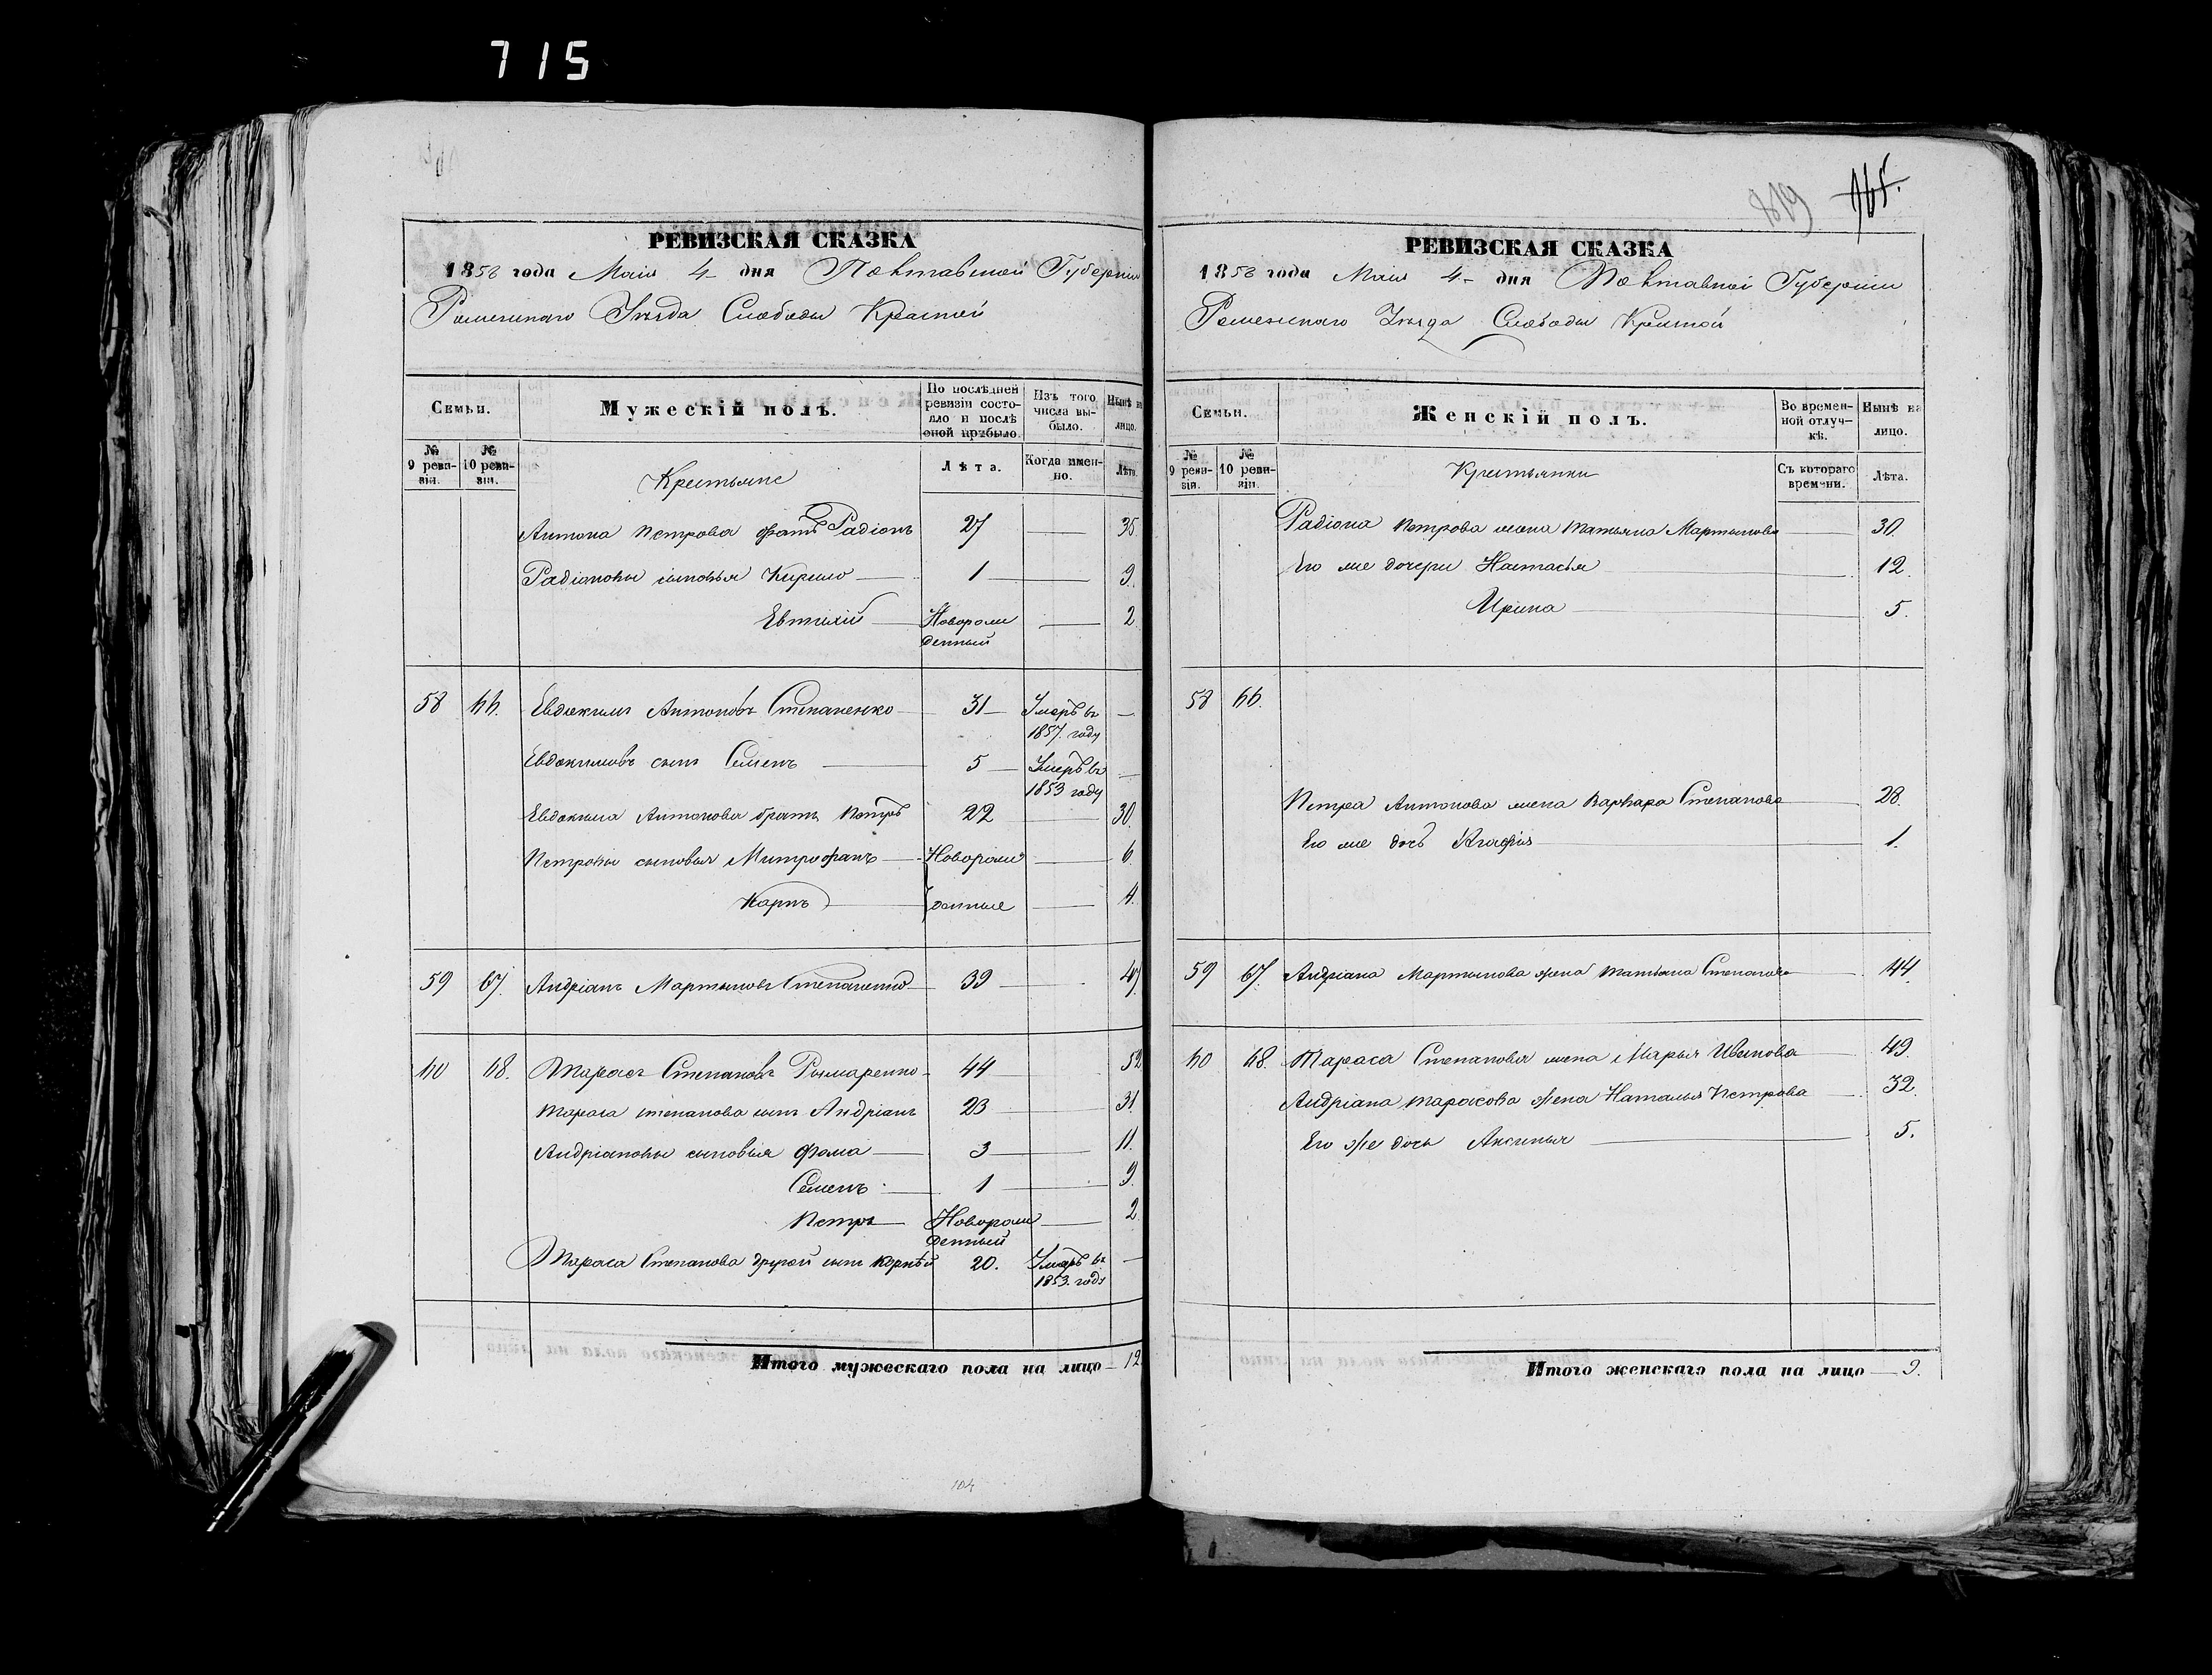 715
819 965.
РЕВИЗСКАЯ СКАЗКА
1858 года Маія 4 дня Полтавской Губерніи
Роменскаго Уѣзда Слободы Красной
Семьи.
Мужескій полъ.
По послѣдней ревизіи состояло и послѣ оной прибыло.
Изъ того числа выбыло.
Нынѣ на лицо.
№ 9 ревизіи.
№ 10 ревизіи.
Крестьяне
Лѣта.
Когда именно.
Лѣта.
Антона Петрова братъ Радіонъ 27 — 35.
Радіоновы сыновья Кирило — 1 — 9.
Евтихій — Новорожденный — 2
58 66. Евдокимъ Антоновъ Степаненко — 31 — Умеръ въ 1857. году —
Евдокимовъ сынъ Семенъ — 5 — Умеръ въ 1853 году —
Евдокима Антонова братъ Петръ 22 — 30.
Петровы сыновья Митрофанъ — Новорож — 6.
Карпъ — денные — 4.
59 67. Андріанъ Мартыновъ Степаненко 39 — 47
60 68. Тарасъ Степановъ Рымаренко — 44 52
Тараса Степанова сынъ Андріанъ 23 — 31
Андріановы сыновья Фома — 3 — 11.
Семенъ — 1 — 9.
Петръ — Новорожденный — 2
Тараса Степанова другой сынъ Корнѣй 20. Умеръ въ 1853. году —
Итого мужескаго пола на лицо — 12
104
РЕВИЗСКАЯ СКАЗКА
1858 года Маія 4 дня Полтавской Губерніи
Роменскаго Уѣзда Слободы Красной
Семьи.
Женскій полъ.
Во временной отлучкѣ.
Нынѣ на лицо.
№ 9 ревизіи.
№ 10 ревизіи.
Крестьянки
Съ котораго времени.
Лѣта.
Радіона Петрова жена Татьяна Мартынова — 30.
Его же дочери Настасья — 12.
Ирина — 5.
58 66.
Петра Антонова жена Варвара Степанова — 28.
Его же дочь Агафія — 1.
59 67. Андріана Мартынова жена Татьяна Степанова — 44.
60 68. Тараса Степанова жена Марья Иванова — 49.
Андріана Тарасова жена Наталья Петрова — 32.
Его же дочь Аксинья — 5.
Итого женскаго пола на лицо — 9.